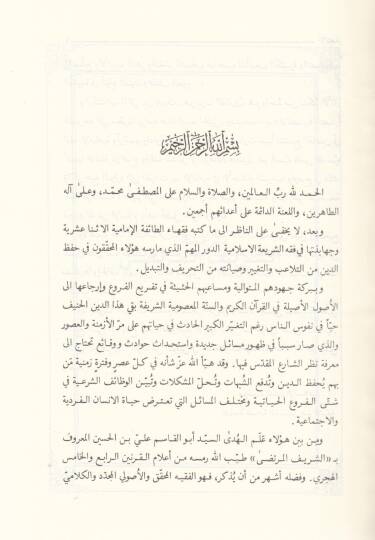 بسم الله الرحمن الرحيم
الحمد لله ربّ العالمين، والصلاة والسلام على المصطفى محمّد، وعلى آله
الطاهرين، واللعنة الدائمة على أعدائهم أجمعين.
وبعد، لا يخفى على الناظر الى ما كتبه فقهاء الطائفة الإمامية الاثنا عشرية
وجهابذتها في فقه الشريعة الاسلامية الدور المهمّ الذي مارسه هؤلاء المحقّقون في حفظ
الدين من التلاعب والتغيير وصيانته من التحريف والتبديل.
وبركة جهودهم المتوالية ومساعيهم الحثيثة في تفريع الفروع وإرجاعها الى
الأصول الأصيلة في القرآن الكريم والسنّة المعصومية الشريفة بقي هذا الدين الحنيف
حيّاً في نفوس الناس رغم التغيّر الكبير الحادث في حياتهم على مرّ الأزمنة والعصور
والذي صار سبباً في ظهور مسائل جديدة واستحداث حوادث ووقائع تحتاج الى
معرفة نظر الشارع المقدّس فيها. وقد هيّأ الله عزّ شأنه في كلّ عصر وفترة زمنية مَن
بهم يُحفظ الدين وتُدفع الشُبهات وتُحلّ المشكلات وتُبيَّن الوظائف الشرعية في
شتّى الفروع الحياتية ومختلف المسائل التي تعترض حياة الانسان الفردية
والاجتماعية.
ومِن بين هؤلاء عَلَم الهُدى السيّد أبو القاسم عليّ بن الحسين المعروف
بـ «الشريف المرتضى» طيّب الله رمسه من أعلام القرنين الرابع والخامس
الهجري. وفضله أشهر من أن يُذكر، فهو الفقيه المحقّق والأصولي المجدّد والكلاميّ